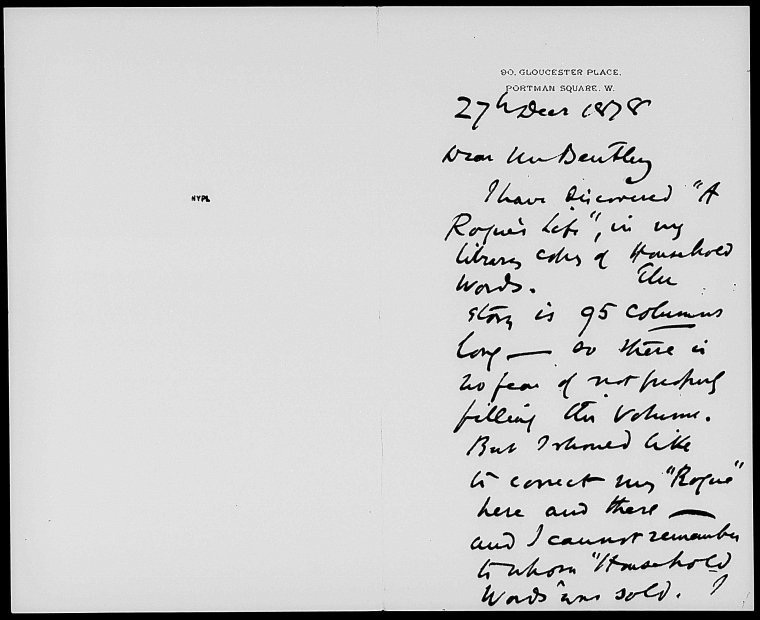 NYPL
90, GLOUCESTER PLACE,
PORTMAN SQUARE. W.
27th Decr 1878
Dear Mr Bentley
I have discovered "A
Rogue's Life", in my
library copy of Household
Words. The
story is 95 columns
long — so there is
no fear of not properly
filling the volume.
But I should like
to correct my "Rogue"
here and there —
and I cannot remember
to whom "Household
Words" was sold. I